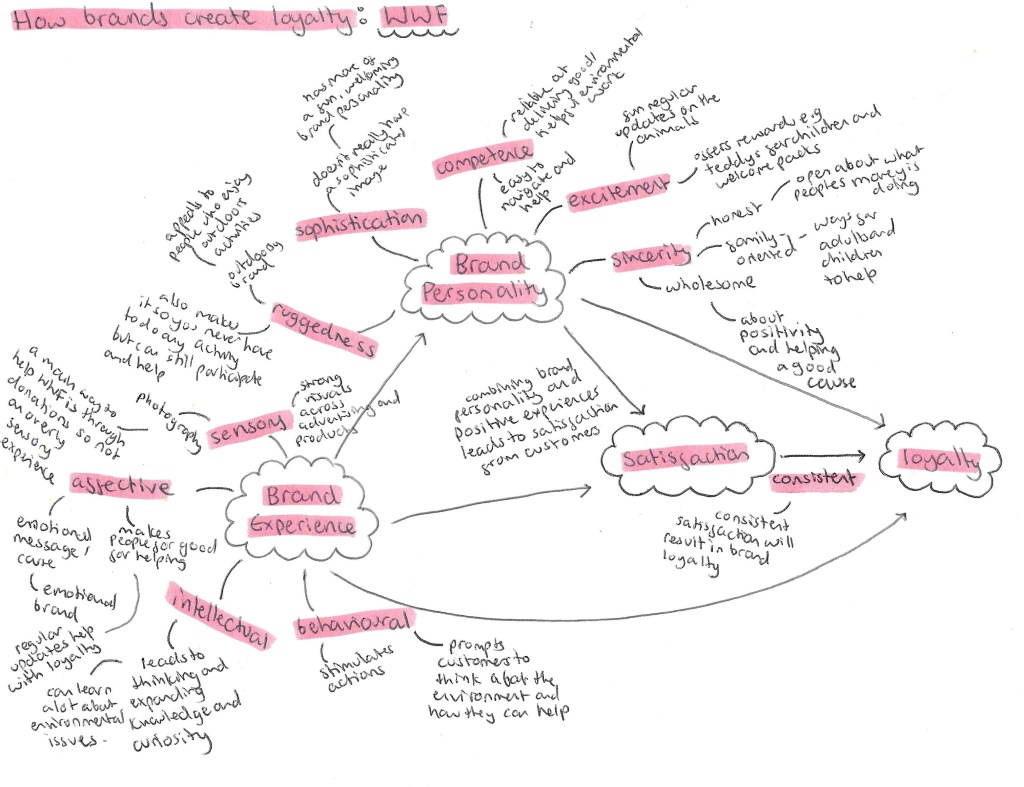 How brands create loyalty: WWF
has more of
a fun, welcoming
brand personality
doesn't really have
a sophisticated
image
sophistication
reliable at
delivering good/
helpful environmental
work
competence
easy to
navigate and
help
fun regular
updates on the
animals
excitement
offers rewards e.g
teddys for children and
welcome packs
sincerity
honest
open about what
peoples money is
doing
family-
oriented
ways for
adults and
children
to help
wholesome
about
positivity
and helping
a good
cause
Brand
Personality
appeals to
people who enjoy
outdoors
activities
outdoorsy
brand
ruggedness
also make
it so you never have
to do any activity
but can still participate
and help
combining brand
personality and
positive experiences
leads to satisfaction
from customers
satisfaction
consistent
consistent
satisfaction will
result in brand
loyalty
loyalty
Brand
Experience
sensory
strong
visuals
across
advertising and
products
photography
a main way to
help WWF is through
donations so not
an overly
sensory
experience
affective
emotional
message/
cause
emotional
brand
makes
people for good
for helping
regular
updates help
with loyalty
intellectual
leads to
thinking and
expanding
knowledge and
curiosity
can learn
a lot about
environmental
issues.
behavioural
stimulates
actions
prompts
customers to
think about the
environment and
how they can help